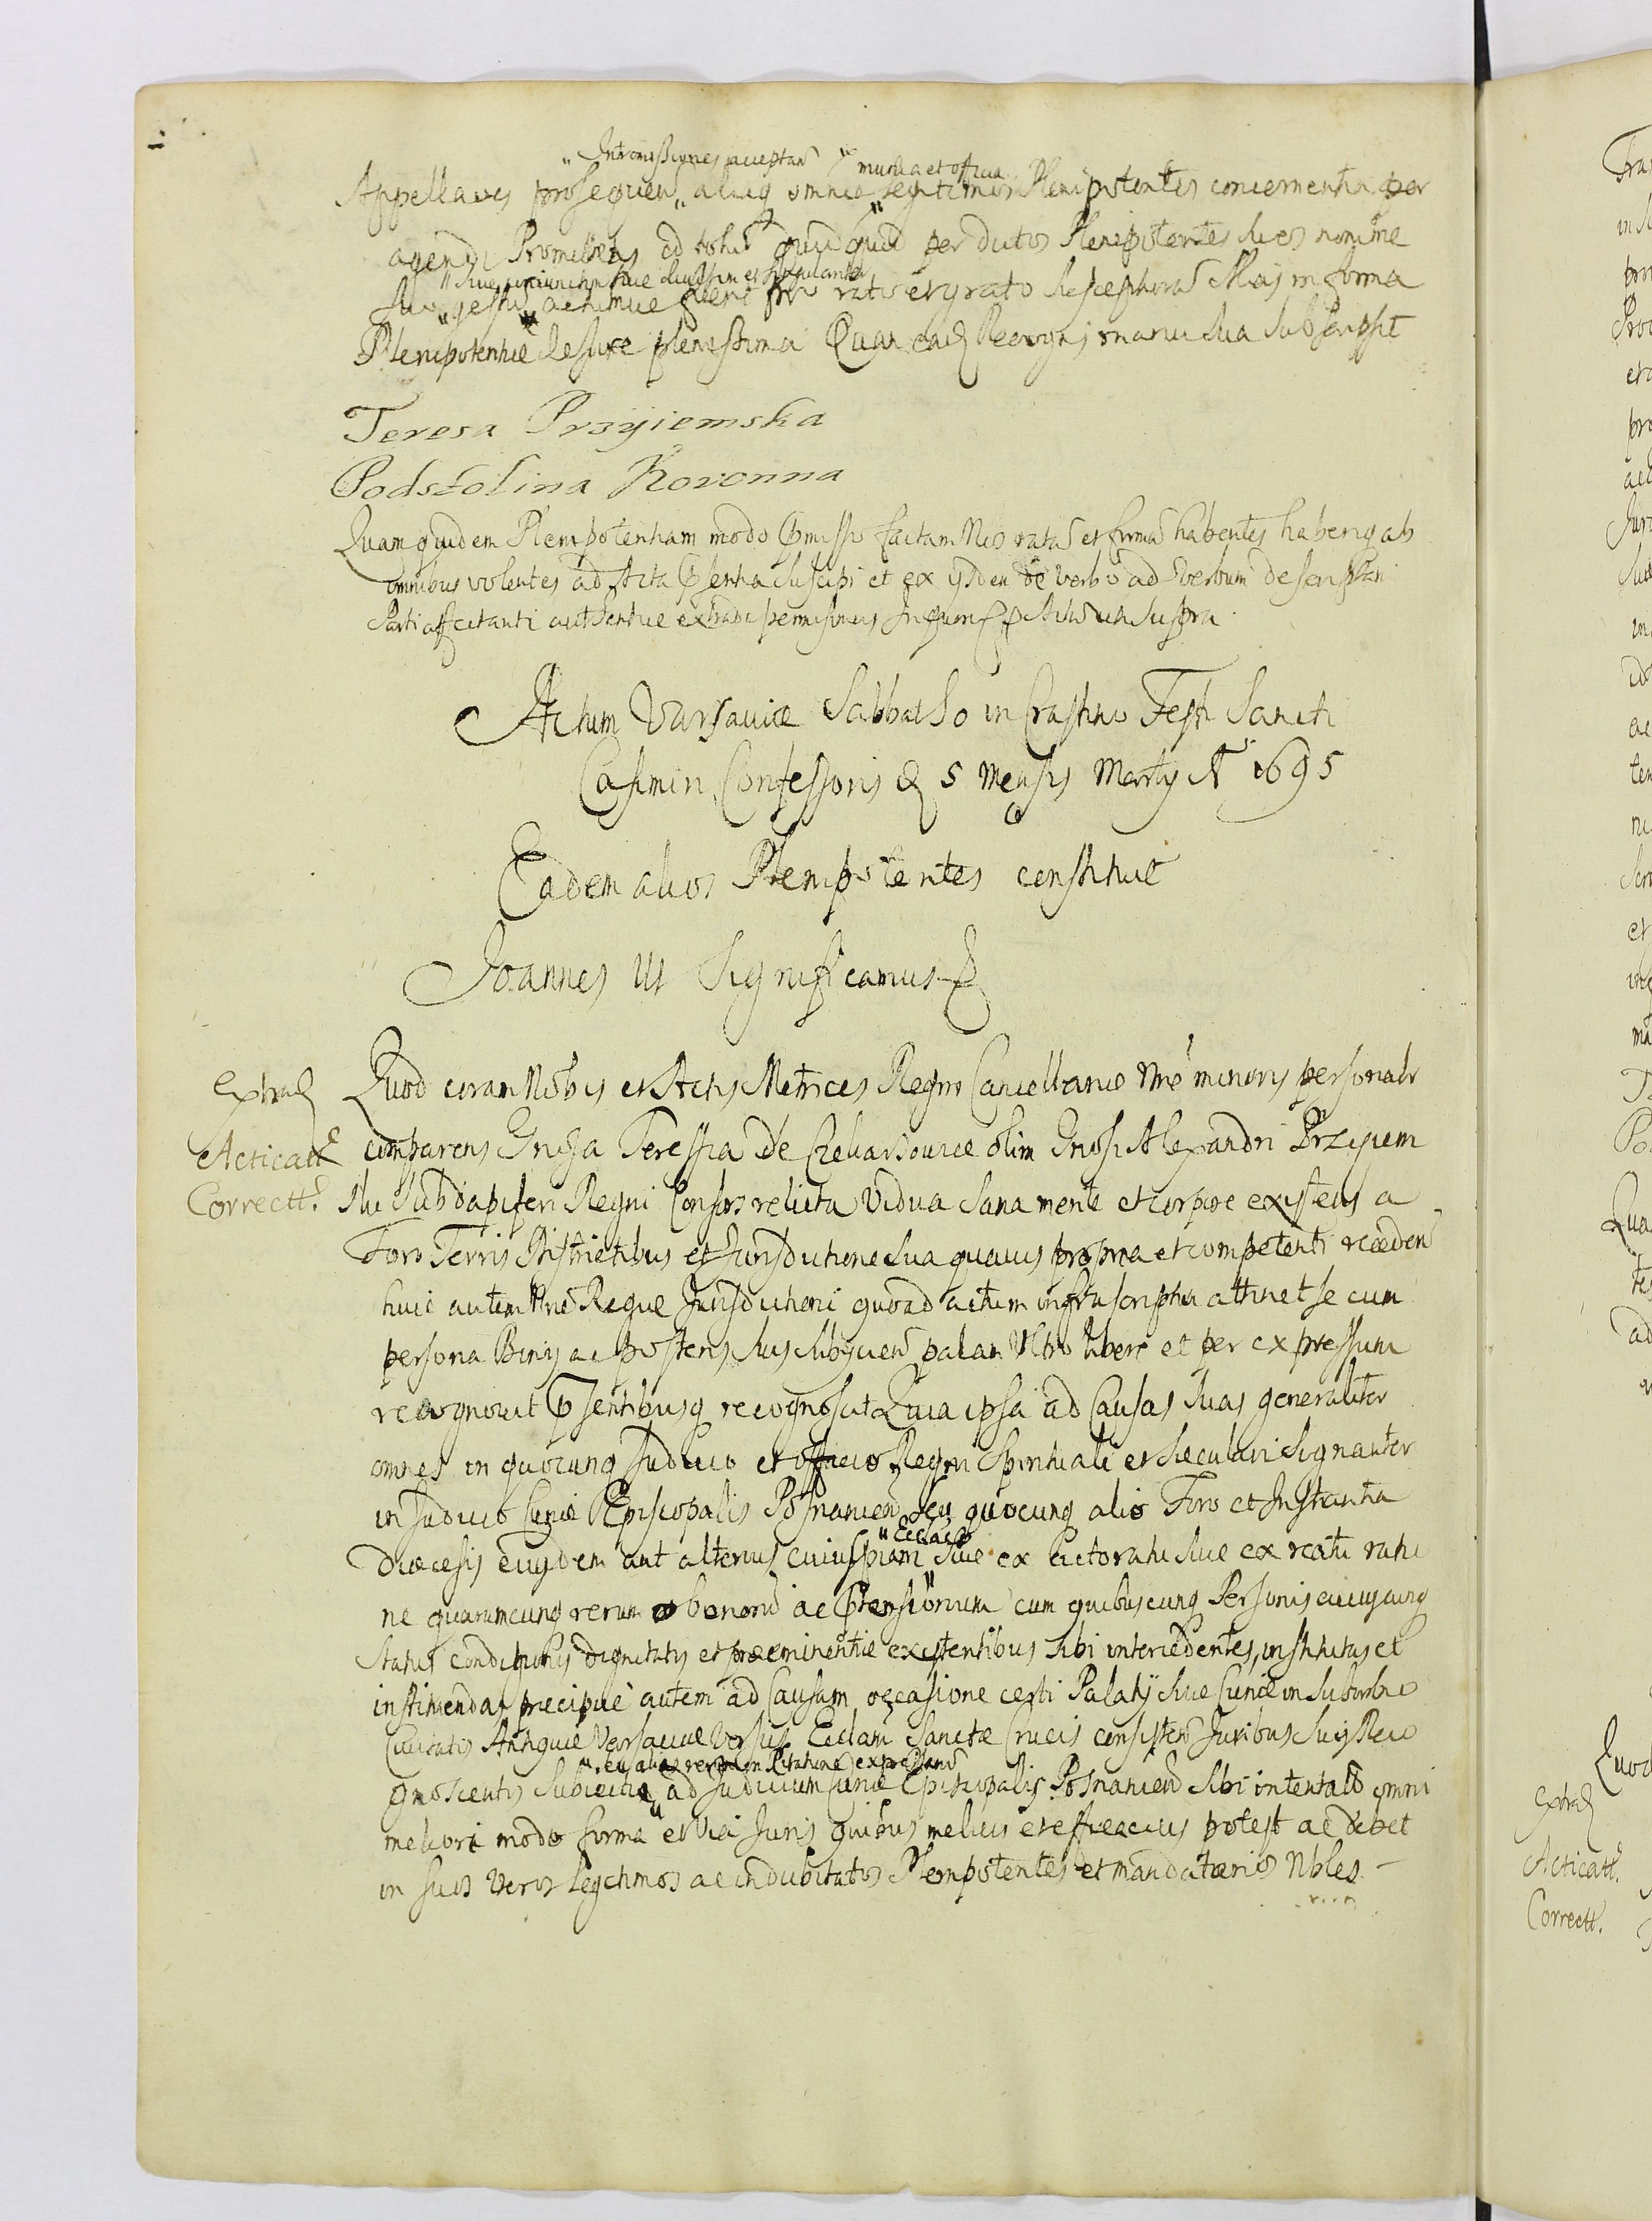 " Intromissiones acceptan " munia et officia
Appellaoes prosequen " aliaq omnia " legitimos Plenipotentes concernentia per
agendi Promittens id totu quidquid per dictos Plenipotentes suos nomine
" sive coniunctim sive divisim et singulariter
suo " gestu " actumue fuerit pro rato et grato susceptura Mas in forma
Plenipotentiæ de jure plenissima Quam ead Recogn manu sua subscripsit
Teresa Przyiemska
Podstolina Koronna
Quam quidem Plenipotentiam modo pmisso factam Nos rata et firma habentes haberiq ab
omnibus volentes ad Acta psentia suscipi et ex ijsdem de verbo ad verbum descriptam
Parti affectanti authentice extradi permisimus In quor Actu ut supra
Actum Varsaviæ Sabbatho in Crastino Festi Sancti
Casimiri Confessoris d 5 Mensis Martij A 1695
Eadem alios Plenipotentes constituit
Joannes III Significamus
Extrad
Acticatt
Correctt.
Quod coram Nobis et Actis Metrices Regni Cancellariæ Nræ minoris personalr
comparens Gnosa Teressia de olim Gnosi Alexandri Przyiem
ski Subdapiferi Regni Consors relicta Vidua sana mente et corpore existens a
Foro Terris Districtibus et Jurisdictione sua quavis propria et competenti receden
huic autem Nræ Regiæ Jurisdictioni quoad actum infrascriptu attinet se cum
persona Bonis ac posteris suis subijcien palam Ultro libere et per expressum
recognovit psentibusq recognoscit Quia ipsa ad Causas suas generaliter
omnes in quocunq Judicio et officio Regni Spirituali et Sæculari signanter
in Judicio Curiæ Episcopalis Posnanien seu quocunq alio Foro et Instantia
" Ecclaco
Diæcesis eiusdem aut alterius cuiuspiam " sive ex actoratu sive ex reatu ratio
ne quarumcunq rerum bonoru ac ptensionum cum quibuscunq Personis cuiuscunq
status conditionis dignitatis et præeminentiæ existentibus sibi intercedentes, institutas et
instituendas præcipue autem ad Causam occasione certi Palatij sive Curiæ in suburbio
Civitatis Antiquæ Varsaviæ versus Ecclam Sanctæ Crucis consisten Juribus suis Reco
" eu alias rerum in Citatione expressaru
gnoscentis subiectæ " ad Judicium Curiæ Episcopalis Posnanien sibi intentata omni
meliori modo forma et via Juris quibus melius et efficacius potest ac debet
in suos veros legitimos ac indubitatos Plenipotentes et mandatarios Nbles